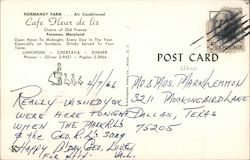 NORMANDY FARM . . . Air Conditioned
Cafe Fleur de lis
Charm of Old France
Potomac, Maryland
Open Noon To Midnight, Every Day In The Year,
Especially on Sundays. Drinks Served To Your
Taste.
LUNCHEON - COCKTAILS - DINNER
Phones - Oliver 2-9421 - Poplar 2-3964
POST CARD
4/7/66
REALLY WISHED YOU
WERE HERE TONIGHT
WHEN THE
& the Geo. R.L.'s Say
HAPPY B'DAY, Geo. LOVE,
FOR 4/14
MR & MRS. MARK LEMMON
3211 MOCKINGBIRD LANE
DALLAS, TEXAS
75205